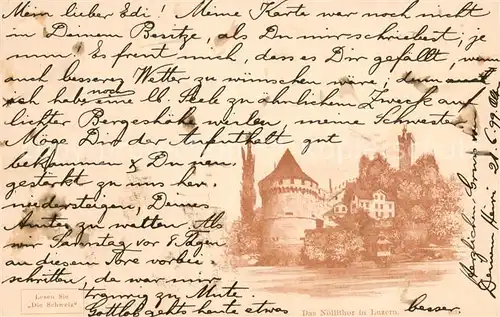 Mein lieber Edi! Meine Karte war noch nicht
in Deinem Besitze, als Du mir schriebest, je
nun! Es freut mich, dass es Dir gefällt, wenn
auch besseres Wetter zu wünschen wäre, denn auch
ich habe eine lb. Seele zu ähnlichem Zweck auf
noch
lichter Bergeshöhe weilen, meine Schwester.
Möge Dir der Aufenthalt gut
bekommen & Du neu
gestärkt zu uns her-
niedersteigen, Deines
Amtes zu walten. Als
wir Samstag vor 8 Tagen
an diesem Tore vorbei-
schritten, da war mir
traurig zu Mute.
Gottlob gehts heute etwas besser.
Herzlichen Gruss von
Deinem
Lesen Sie
"Die Schweiz"
Das Nöllithor in Luzern.